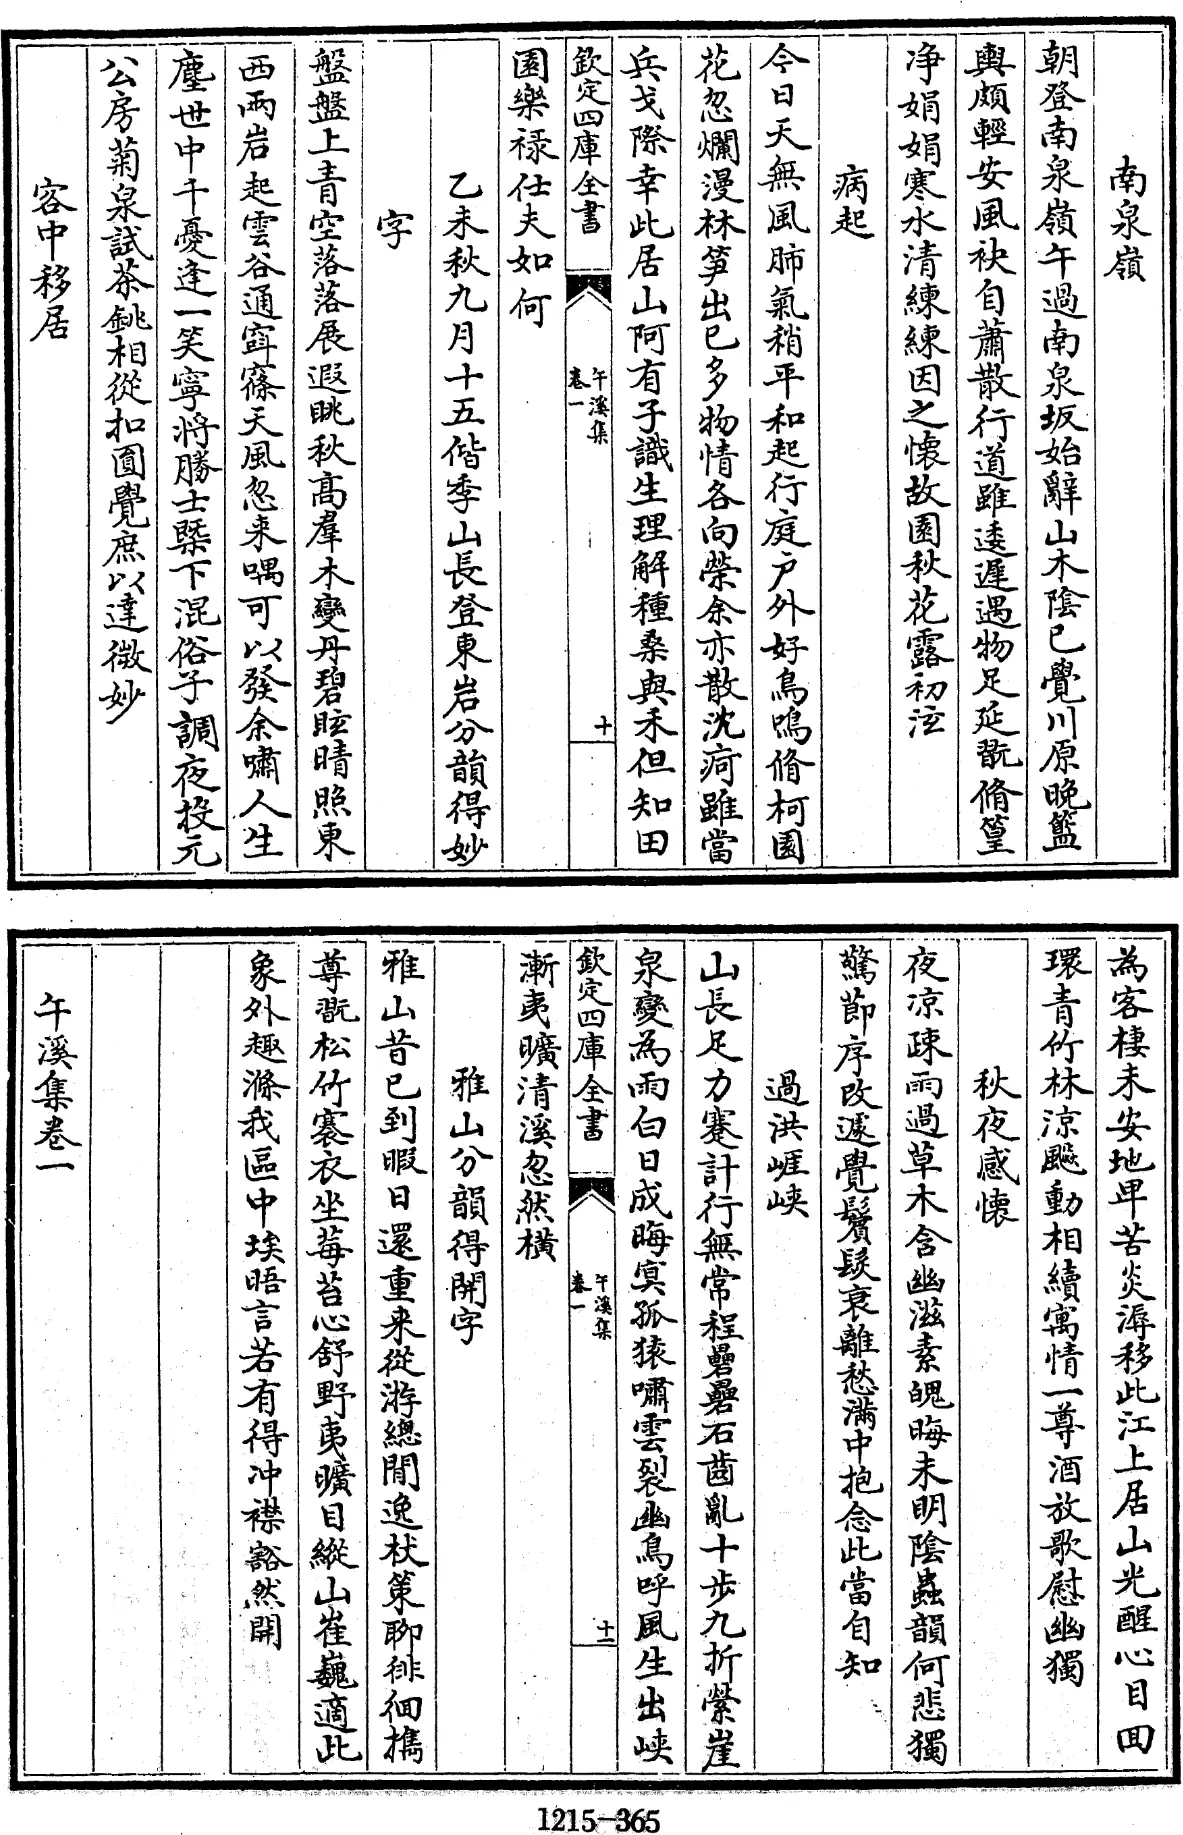 南泉嶺
朝登南泉嶺午過南泉坂始辭山木陰已覺川原晚籃
輿頗輕安風袂自蕭散行道雖逶遲遇物足延翫脩篁
净娟娟寒水清練練因之懷故園秋花露初泫
病起
今日天無風肺氣稍平和起行庭户外好鳥鳴脩柯園
花忽爛漫林笋出已多物情各向榮余亦散沈痾雖當
兵戈際幸此居山阿有子識生理解種桑與禾但知田
欽定四庫全書
午溪集
卷一
十
園樂禄仕夫如何
乙未秋九月十五偕季山長登東岩分韻得妙
字
盤盤上青空落落展遐眺秋高羣木變丹碧眩晴照東
西兩岩起雲谷通窅篠天風忽来喁可以發余嘯人生
塵世中千憂逢一笑寧將勝士槩下混俗子調夜投元
公房菊泉試茶銚相從扣圓覺庶以達微妙
客中移居
為客棲未安地卑苦炎溽移此江上居山光醒心目回
環青竹林涼颸動相續寓情一尊酒放歌慰幽獨
秋夜感懷
夜凉疎雨過草木含幽滋素魄晦未明陰蟲韻何悲獨
驚節序改遽覺鬢髮衰離愁滿中抱念此當自知
過洪崕峽
山長足力蹇計行無常程磊磊石齒亂十步九折縈崖
泉變為雨白日成晦冥孤猿嘯雲裂幽鳥呼風生出峽
欽定四庫全書
午溪集
卷一
十一
漸夷曠清溪忽然橫
雅山分韻得開字
雅山昔已到暇日還重来從游總閒逸杖策聊徘徊擕
尊翫松竹褰衣坐莓苔心舒野夷曠目縱山崔巍適此
象外趣滌我區中埃晤言若有得冲襟豁然開
午溪集卷一
1215-365